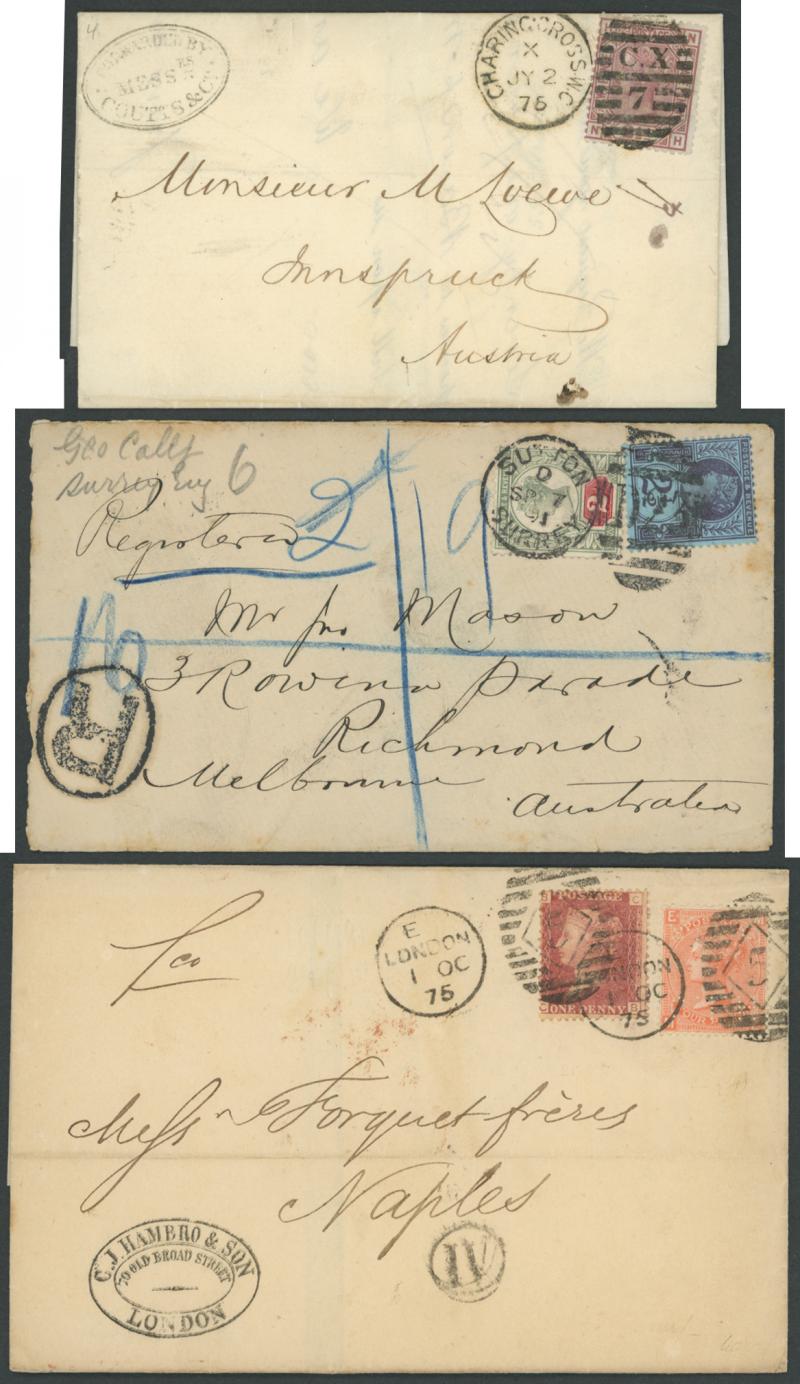 FORWARDED BY
MESSRS
COUTTS & CO
CHARING CROSS W.C
X
JY 2
75
C.X
7
N
N H
Monsieur M Loewe
Innspruck
Austria
Geo Call
Surrey Eng 6
Registered
2
19
SUTTON
D
SP 7
91
SURREY
2
Mr Jno Mason
3 Rowena Parade
Richmond
Melbourne
Australia
R
E
LONDON
1 OC
75
POSTAGE
B C
ONE PENNY
C B
LONDON
1 OC
75
E
Messrs Forquet frères
Naples
C. J. HAMBRO & SON
70 OLD BROAD STREET
LONDON